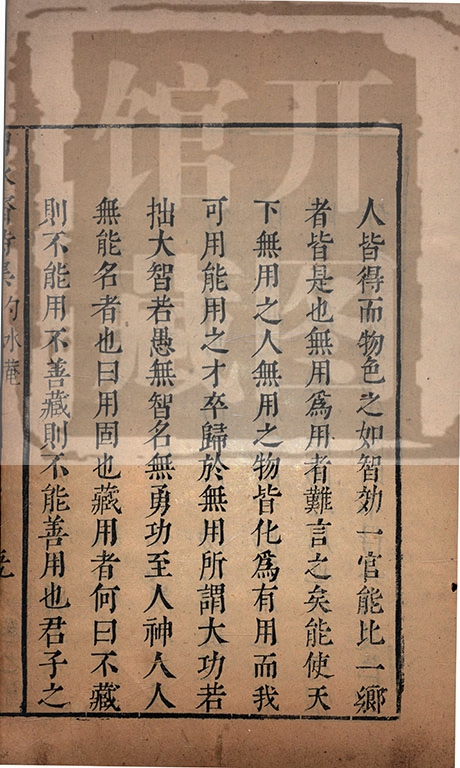 人皆得而物色之如智効一官能比一鄉
者皆是也無用爲用者難言之矣能使天
下無用之人無用之物皆化爲有用而我
可用能用之才卒歸於無用所謂大功若
拙大智若愚無智名無勇功至人神人人
無能名者也曰用固也藏用者何曰不藏
則不能用不善藏則不能善用也君子之
勺水菴
开图馆藏